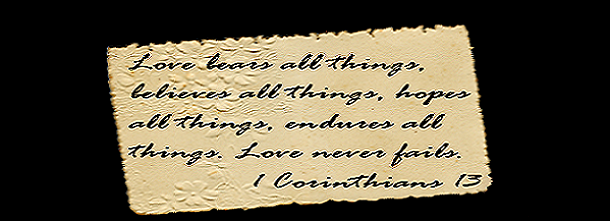 Love bears all things,
believes all things, hopes
all things, endures all
things. Love never fails.
1 Corinthians 13